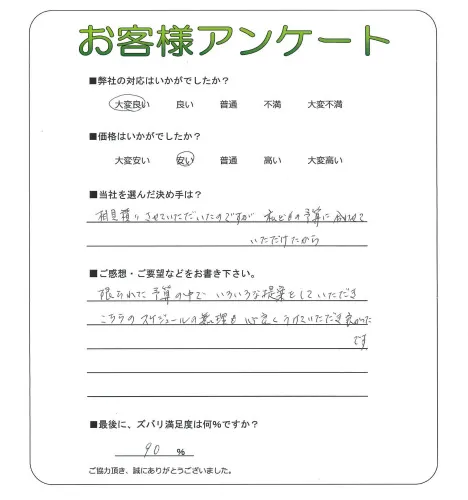 お客様アンケート
■弊社の対応はいかがでしたか？
大変良い 良い 普通 不満 大変不満
■価格はいかがでしたか？
大変安い 安い 普通 高い 大変高い
■当社を選んだ決め手は？
相見積りさせていただいたのですが 私どもの予算に合わせて
いただけたから
■ご感想・ご要望などをお書き下さい。
限られた予算の中で いろいろな提案をしていただき
こちらのスケジュールの無理も心良くうけていただき良かった
です
■最後に、ズバリ満足度は何％ですか？
90 ％
ご協力頂き、誠にありがとうございました。